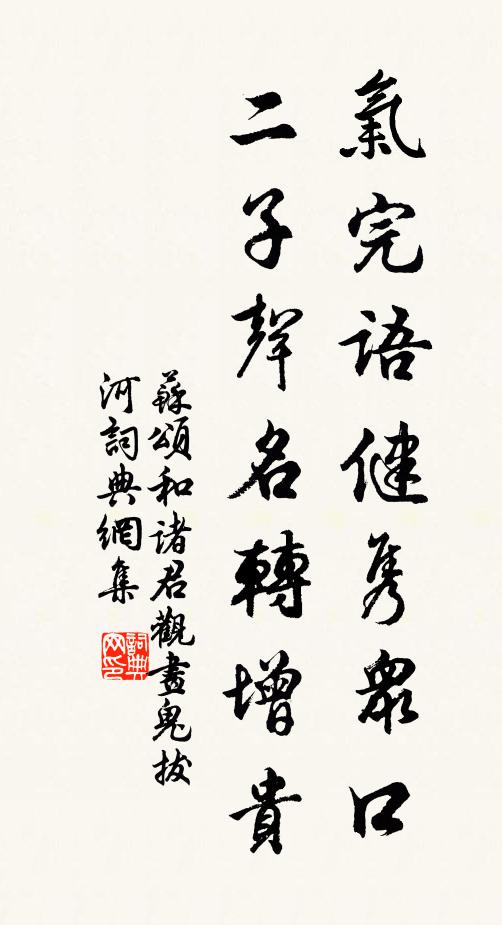 氣完語健隽衆口
二子聲名轉增貴
蘇頌和諸君觀畫鬼拔
河詞典網集
詞典網印